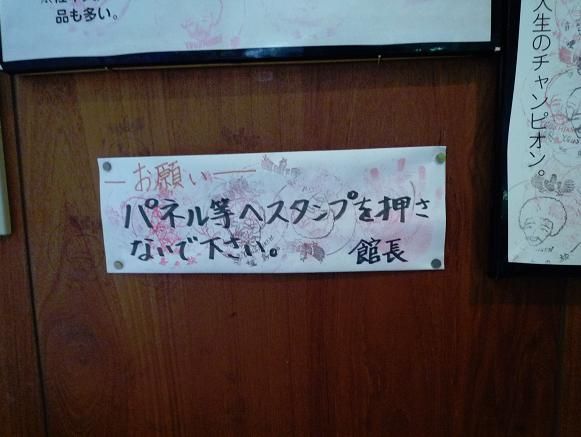 品も多い。
人生のチャンピオン。
ーお願いー
パネル等へスタンプを押さ
ないで下さい。 館長